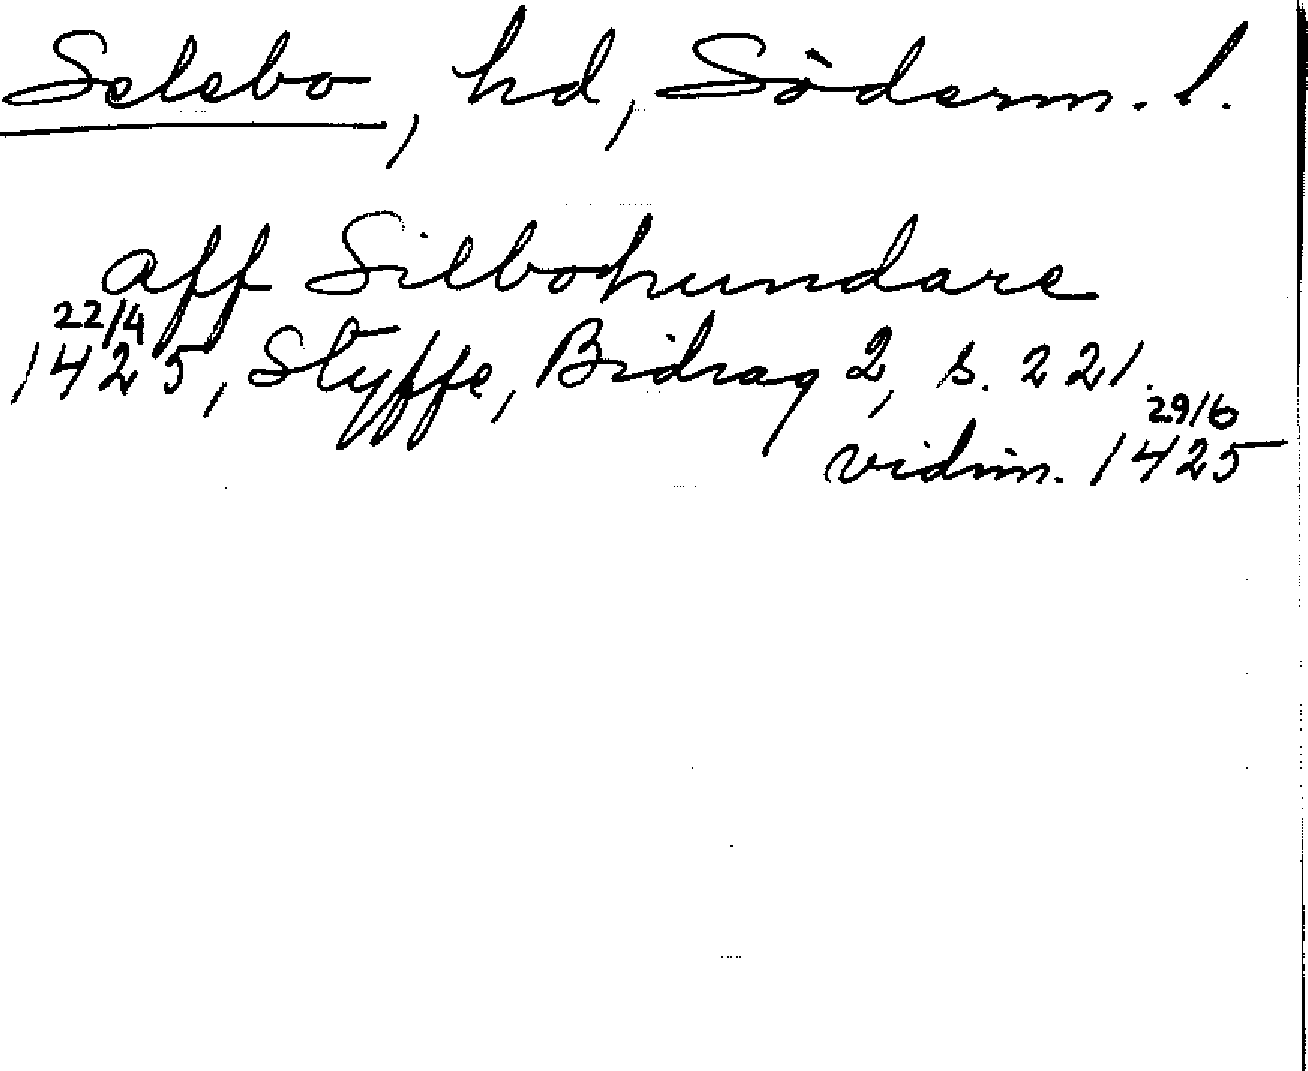 Selebo, hd, Söderm. l.
aff Silbohundare
22/4
1425, Styffe, Bidrag 2, s. 221.
29/6
vidim. 1425